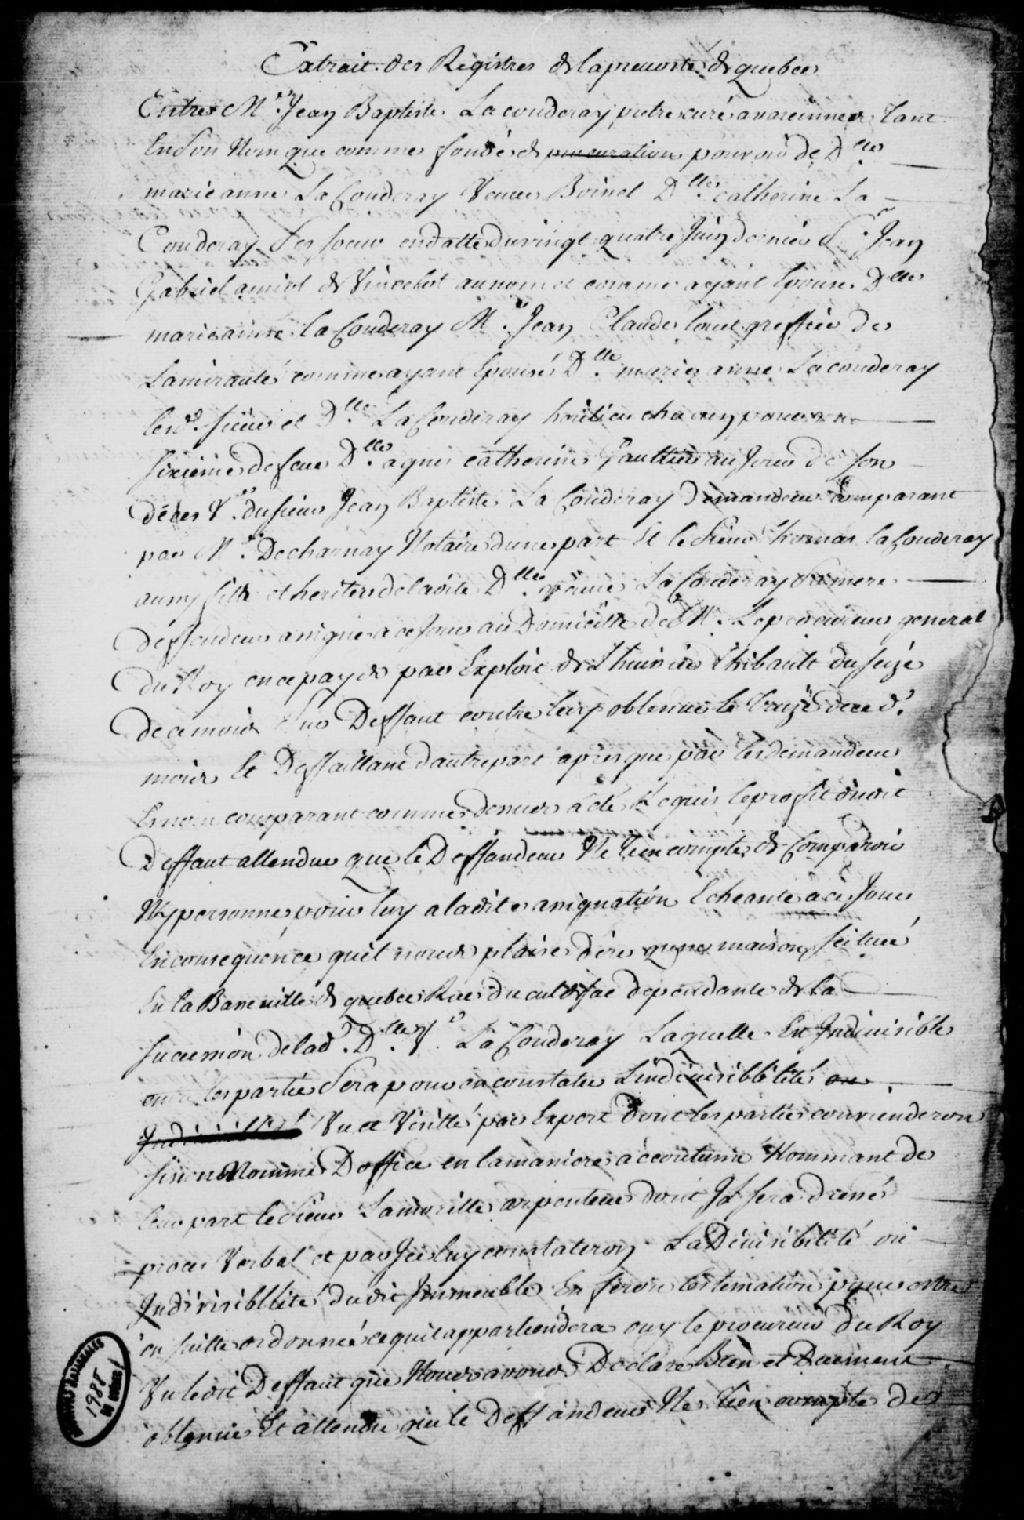 Extrait des Registres de la prevosté de quebec
Entre Mr Jean Baptiste La couderay prêtre curé a varennes tant
En son Nom que comme fondé de procuration pouvoir de Dlle
marie anne La Couderay Veuve Boinet Dlle catherine La
Couderay Ses soeurs en datte du vingt quatre Juin dernier Sr Jean
Gabriel amiot de Vincelot au nom et comme ayant Epousé Dlle
marie anne la Couderay Mr Jean Claude Louet greffier de
Lamirauté comme ayant Epousé Dlle marie anne La couderay
Lesds Sieurs et Dlles La Couderay heritiers chacun pour un
sixieme de feue Dlle agnes catherine Gaultier au Jour de son
déces Ve du sieur Jean Baptiste La Couderay Demandeurs Comparant
par Mr Decharnay Notaire d'une part Et le Sieur thomas la Couderay
aussy fils et heritier de ladite Dlle veuve La Couderay sa mere
Deffendeur assigné a ce Jour au Domicille de Mr Le procureur general
du Roy en ce pays par Exploit de Lhuissier thibault du seize
de ce mois Sur Deffaut contre luy obtenu le treize de ced.
mois Et Deffaillant d'autre part apres que par les demandeurs
comparant comme dessus a été Requis le profit dudit
Deffaut attendu que le Deffandeur Ne tien compte de Comparoir
Ny personne pour luy a ladite assignation Echeante a ce Jour
En consequence quil nous plaise dire qu'une maison scituée
En la Basse ville de quebec Rue du culdesac dependante de la
succession de lad. Dlle Ve La Couderay Laquelle Est Indivisible
les parties Sera pour en constater Lindivisiblilité ou
Vu et Visitté par Expert dont les parties conviendront
sinon Nommés D'office en la maniere accoutumé Nommant de
Leur part le Sieur Lamorille arpenteur dont Il sera dressé
proces Verbal et par Iceluy constateront La Divisibilité ou
Indivisibllité dudit Immeuble En feront lestimation pour estre
en suitte ordonné ce quil appartiendera ouy le procureur du Roy
Vu ledit Deffaut que Nous avons Declaré Bien et Duement
obtenue Et attendu que le Deffandeur Ne tien compte de
ARCHIVES NATIONALES
1985
DU QUÉBEC